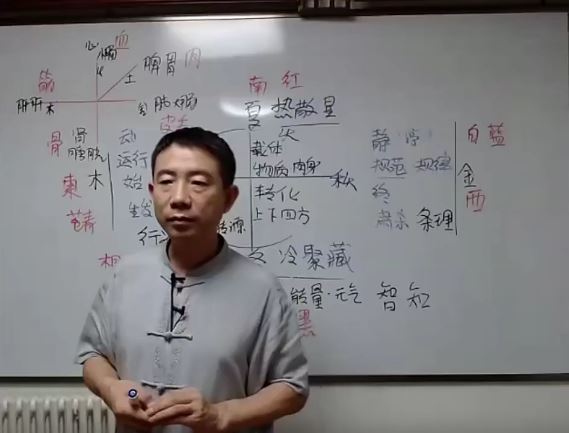 心 小肠 血
火
脾胃 肉
土
筋
肝胆木
金 肺大肠
皮毛
骨 肾
膀胱
南 红
夏 热散显
火
载体
物质 肉身
秋
转化
上下四方
动
运行
始
生发
东 木
静
规范 规律
终
肃杀 条理
白 蓝
金
西
转源
冬 冷聚藏
能量·元气 智 知
黑